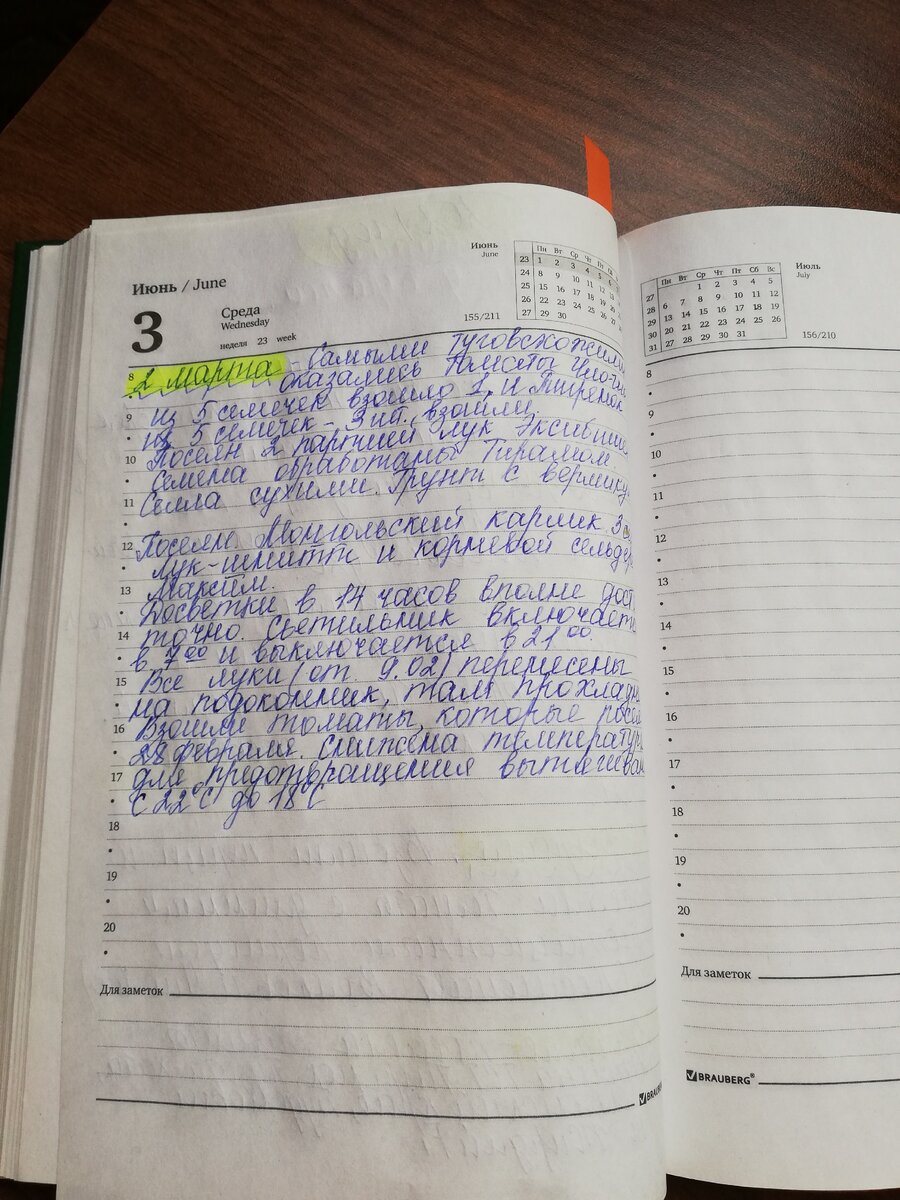 Июнь / June
3
Среда
Wednesday
неделя 23 week
Июнь
June
Пн Вт Ср Чт Пт Сб
23 1 2 3 4 5 6
24 8 9 10 11 12 13
25 15 16 17 18 19 20
26 22 23 24 25 26
27 29 30
155/211
8 2 марта - Самыми туговсхожими
оказались томаты
9 из 5 семечек взошло 1. И Тирамок
из 5 семечек - 3 шт. взошли
10 Посеян 2 партией лук Эксибишн
Семена обработаны Тирамом.
11 Сеяла сухими. Грунт с вермику
12 Посеян Монгольский карлик 3
Лук-шнитт и корневой сельдер
13 Максим.
Досветки в 14 часов вполне дост
14 точно. Светильник включаетс
в 7 00 и выключается в 21 00.
15 Все луки (от 9.02) перенесены
на подоконник, там прохладн
16 Взошли томаты, которые посея
28 февраля. Снижена температура
17 для предотвращения вытягиван
С 22°С до 18°С
18
19
20
Для заметок
BRAUBE
Июль
July
Пн Вт Ср Чт Пт Сб Вс
27 1 2 3 4 5
28 6 7 8 9 10 11 12
29 13 14 15 16 17 18 19
30 20 21 22 23 24 25 26
31 27 28 29 30 31
156/210
8
9
10
11
12
13
14
15
16
17
18
19
20
Для заметок
BRAUBERG®